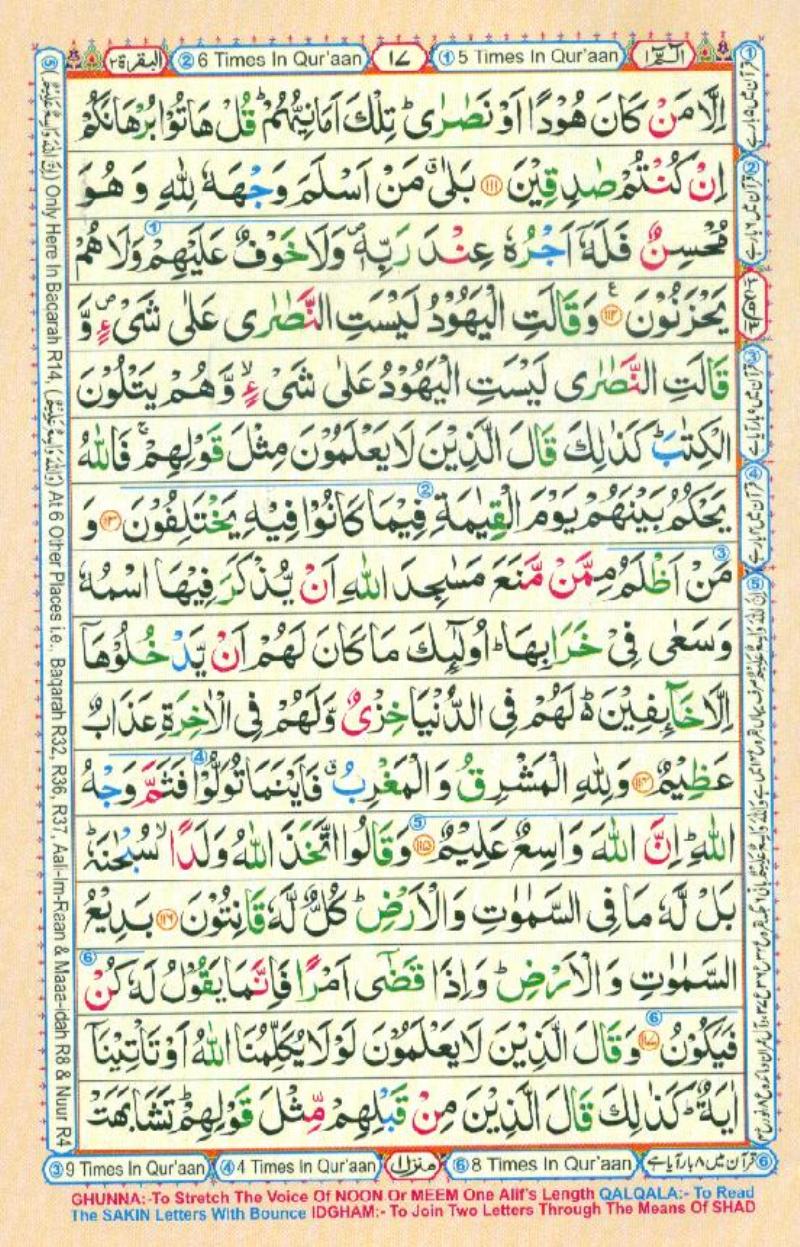 البقرة ٢ ② 6 Times In Qur'aan ١٧ ① 5 Times In Qur'aan الٓمّٓ ١
اِلَّا مَنْ كَانَ هُوْدًا اَوْ نَصٰرٰى ؕ تِلْكَ اَمَانِيُّهُمْ ؕ قُلْ هَاتُوْا بُرْهَانَكُمْ
اِنْ كُنْتُمْ صٰدِقِيْنَ ﴿۱۱۱﴾ بَلٰى ۗ مَنْ اَسْلَمَ وَجْهَهٗ لِلّٰهِ وَ هُوَ
مُحْسِنٌ فَلَهٗۤ اَجْرُهٗ عِنْدَ رَبِّهٖ ۪ ① وَلَا خَوْفٌ عَلَيْهِمْ وَلَا هُمْ
يَحْزَنُوْنَ ﴿۱۱۲﴾ ع وَقَالَتِ الْيَهُوْدُ لَيْسَتِ النَّصٰرٰى عَلٰى شَىْءٍ ۪ وَّ
قَالَتِ النَّصٰرٰى لَيْسَتِ الْيَهُوْدُ عَلٰى شَىْءٍ ۙ وَّهُمْ يَتْلُوْنَ
الْكِتٰبَ ؕ كَذٰلِكَ قَالَ الَّذِيْنَ لَا يَعْلَمُوْنَ مِثْلَ قَوْلِهِمْ ۚ فَاللّٰهُ
يَحْكُمُ بَيْنَهُمْ يَوْمَ الْقِيٰمَةِ ② فِيْمَا كَانُوْا فِيْهِ يَخْتَلِفُوْنَ ﴿۱۱۳﴾ وَ
③ مَنْ اَظْلَمُ مِمَّنْ مَّنَعَ مَسٰجِدَ اللّٰهِ اَنْ يُّذْكَرَ فِيْهَا اسْمُهٗ
وَسَعٰى فِىْ خَرَابِهَا ؕ اُولٰٓئِكَ مَا كَانَ لَهُمْ اَنْ يَّدْخُلُوْهَاۤ
اِلَّا خَآئِفِيْنَ ؕ۬ لَهُمْ فِى الدُّنْيَا خِزْىٌ وَّلَهُمْ فِى الْاٰخِرَةِ عَذَابٌ
عَظِيْمٌ ﴿۱۱۴﴾ وَلِلّٰهِ الْمَشْرِقُ وَالْمَغْرِبُ ۗ ④ فَاَيْنَمَا تُوَلُّوْا فَثَمَّ وَجْهُ
اللّٰهِ ؕ اِنَّ اللّٰهَ وَاسِعٌ عَلِيْمٌ ﴿۱۱۵﴾ ⑤ وَقَالُوا اتَّخَذَ اللّٰهُ وَلَدًا ۙ سُبْحٰنَهٗ ؕ
بَلْ لَّهٗ مَا فِى السَّمٰوٰتِ وَالْاَرْضِ ؕ كُلٌّ لَّهٗ قَانِتُوْنَ ﴿۱۱۶﴾ بَدِيْعُ
السَّمٰوٰتِ وَالْاَرْضِ ؕ وَاِذَا قَضٰٓى اَمْرًا فَاِنَّمَا يَقُوْلُ لَهٗ كُنْ ⑥
فَيَكُوْنُ ﴿۱۱۷﴾ ⑥ وَقَالَ الَّذِيْنَ لَا يَعْلَمُوْنَ لَوْلَا يُكَلِّمُنَا اللّٰهُ اَوْ تَاْتِيْنَاۤ
اٰيَةٌ ؕ كَذٰلِكَ قَالَ الَّذِيْنَ مِنْ قَبْلِهِمْ مِّثْلَ قَوْلِهِمْ ؕ تَشَابَهَتْ
⑤ (اِنَّ اللّٰهَ وَاسِعٌ عَلِيْمٌ) Only Here In Baqarah R14, (وَاللّٰهُ وَاسِعٌ عَلِيْمٌ) At 6 Other Places i.e., Baqarah R32, R36, R37, Aali-Im-Raan & Maaa-idah R8 & Nuur R4
① قرآن میں ۵ بار ہے
② قرآن میں ۶ بار ہے
③ 9 Times In Qur'aan ④ 4 Times In Qur'aan منزل ١ ⑥ 8 Times In Qur'aan ⑥ قرآن میں ۸ بار آیا ہے
GHUNNA:-To Stretch The Voice Of NOON Or MEEM One Alif's Length QALQALA:- To Read
The SAKIN Letters With Bounce IDGHAM:- To Join Two Letters Through The Means Of SHAD